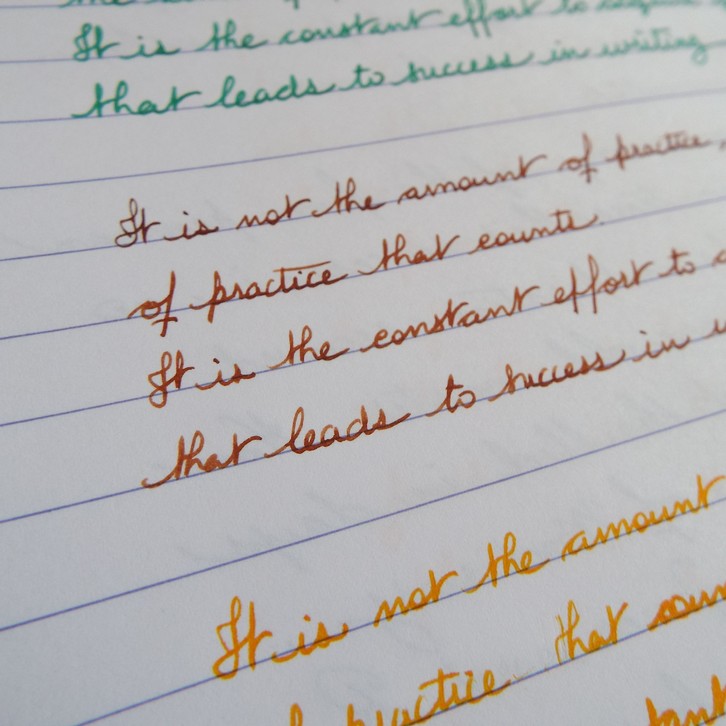 It is the constant effort to
that leads to success in writing
It is not the amount of practice,
of practice that counts.
It is the constant effort to
that leads to success in
It is not the amount
practice that